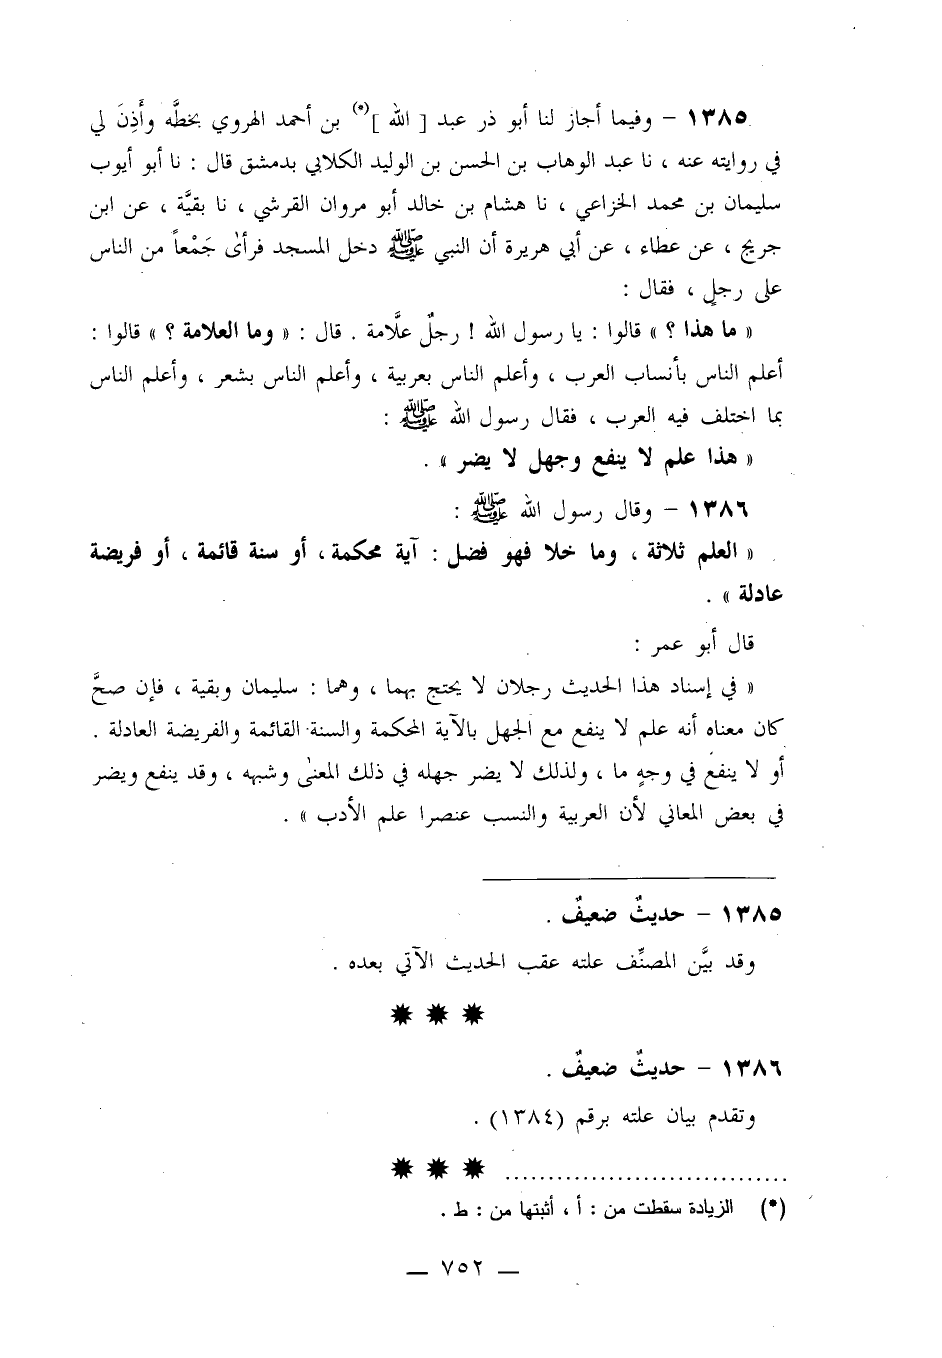 ١٣٨٥ - وفيما أجاز لنا أبو ذر عبد [ الله ](*) بن أحمد الهروي بخطَّه وأَذِنَ لي
في روايته عنه ، نا عبد الوهاب بن الحسن بن الوليد الكلابي بدمشق قال : نا أبو أيوب
سليمان بن محمد الخزاعي ، نا هشام بن خالد أبو مروان القرشي ، نا بقيَّة ، عن ابن
جريج ، عن عطاء ، عن أبي هريرة أن النبي ﷺ دخل المسجد فرأىٰ جَمْعاً من الناس
على رجلٍ ، فقال :
« ما هذا ؟ » قالوا : يا رسول الله ! رجلٌ علَّامة . قال : « وما العلامة ؟ » قالوا :
أعلم الناس بأنساب العرب ، وأعلم الناس بعربية ، وأعلم الناس بشعر ، وأعلم الناس
بما اختلف فيه العرب ، فقال رسول الله ﷺ :
« هذا علم لا ينفع وجهل لا يضر » .
١٣٨٦ - وقال رسول الله ﷺ :
« العلم ثلاثة ، وما خلا فهو فضل : آية محكمة ، أو سنة قائمة ، أو فريضة
عادلة » .
قال أبو عمر :
« في إسناد هذا الحديث رجلان لا يحتج بهما ، وهما : سليمان وبقية ، فإن صحَّ
كان معناه أنه علم لا ينفع مع الجهل بالآية المحكمة والسنة القائمة والفريضة العادلة .
أو لا ينفع في وجهٍ ما ، ولذلك لا يضر جهله في ذلك المعنىٰ وشبهه ، وقد ينفع ويضر
في بعض المعاني لأن العربية والنسب عنصرا علم الأدب » .
١٣٨٥ - حديثٌ ضعيفٌ .
وقد بيَّن المصنِّف علته عقب الحديث الآتي بعده .
١٣٨٦ - حديثٌ ضعيفٌ .
وتقدم بيان علته برقم (١٣٨٤) .
(*) الزيادة سقطت من : أ ، أثبتها من : ط .
— ٧٥٢ —